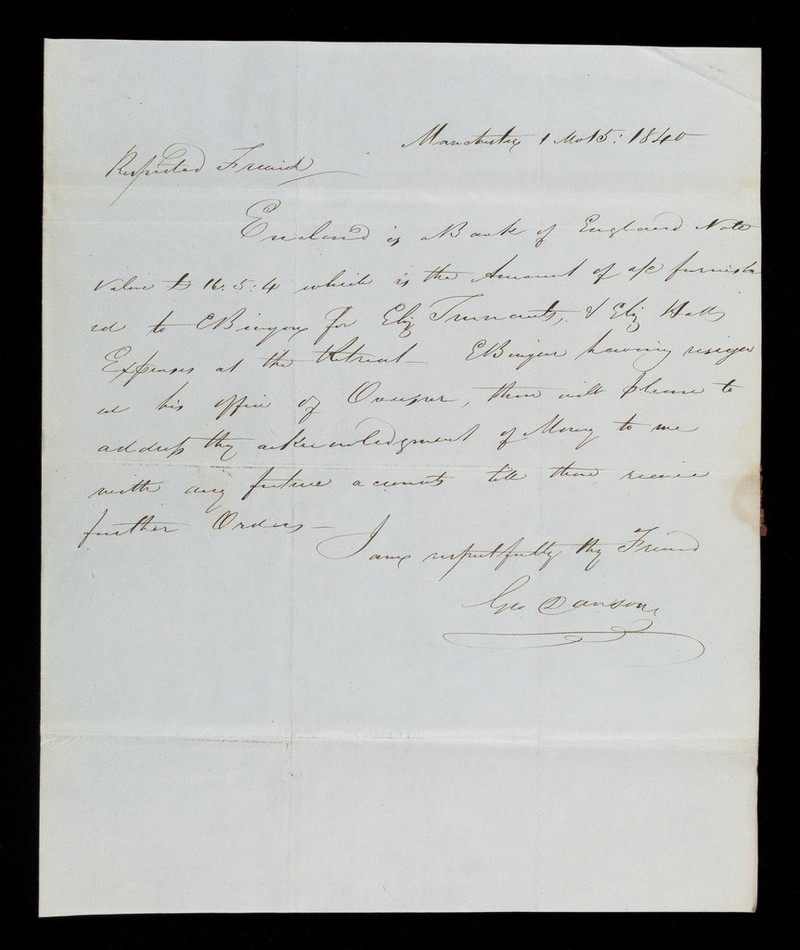 Manchester 1 Mo 15: 1840
Respected Friend
Enclosed is a Bank of England Note
value £ 16:5:4 which is the Amount of a/c furnish
ed to EBinyon for Eliz & Eliz Halls
Expenses at the Retreat — EBinyon having resign
ed his office of Overseer, thou wilt please to
address thy acknowledgment of Money to me
with any future accounts till thou receive
further Orders —
I am respectfully thy Friend
Geo Danson